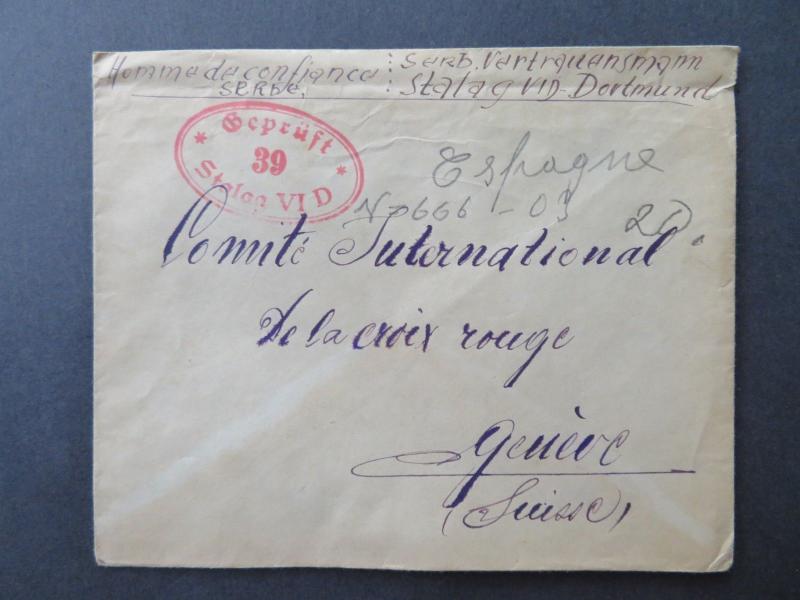 Homme de confiance : Serb. Vertrauensmann
SERBE. : Stalag VID-Dortmund
* Geprüft *
39
Stalag VI D
Espagne
N-666-03
Comité International
De la croix rouge
Genève
(Suisse)